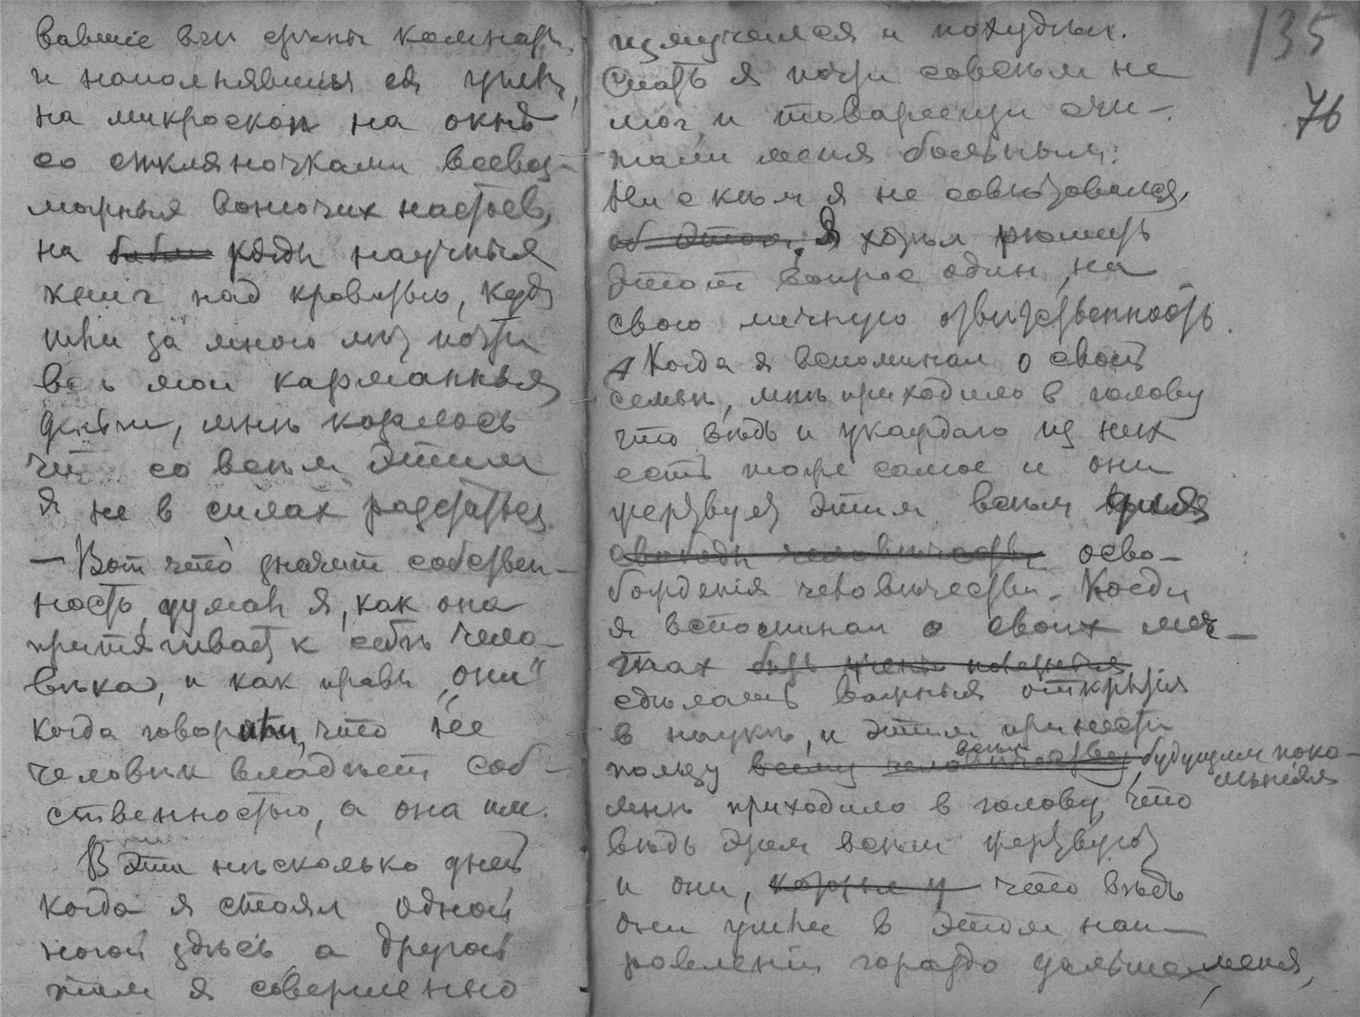 вавшіе все стѣны комнаты,
и наполнявшія ея углы,
на микроскоп на окнѣ
со сткляночками всевоз-
можных вонючих настоев,
на ряды научных
книг над кроватью, куда
шли за мною почти
всѣ мои карманныя
деньги, мнѣ казалось
что со всѣм этим
я не в силах разстаться.
— Вот что значит собствен-
ность, думал я, как она
притягивает к себѣ чело-
вѣка, и как правы „они"
когда говорили, что не
человѣк владѣет соб-
ственностью, а она им.
В эти нѣсколько дней
когда я стоял одной
ногой здѣсь а другой
там я совершенно
135
76
измучился и похудѣл.
Спать я почти совсѣм не
мог, и товарищи счи-
тали меня больным.
Ни с кѣм я не совѣтовался,
об этом. Я хотѣл рѣшить
этот вопрос один, на
свою личную отвѣтственность.
Когда я вспоминал о своей
семьѣ, мнѣ приходило в голову
что вѣдь и у каждаго из них
есть тоже самое и они
жертвуют этим всѣм для
свободы человѣчества осво-
божденія человѣчества. Когда
я вспоминал о своих меч-
тах
сдѣлать важныя открытія
в наукѣ, и этим принести
пользу всему человѣчеству, будущим поко-
лѣніям
мнѣ приходило в голову, что
вѣдь этим всѣм жертвуют
и они, что вѣдь
они ушли в этом нап-
равленіи гораздо дальше меня,